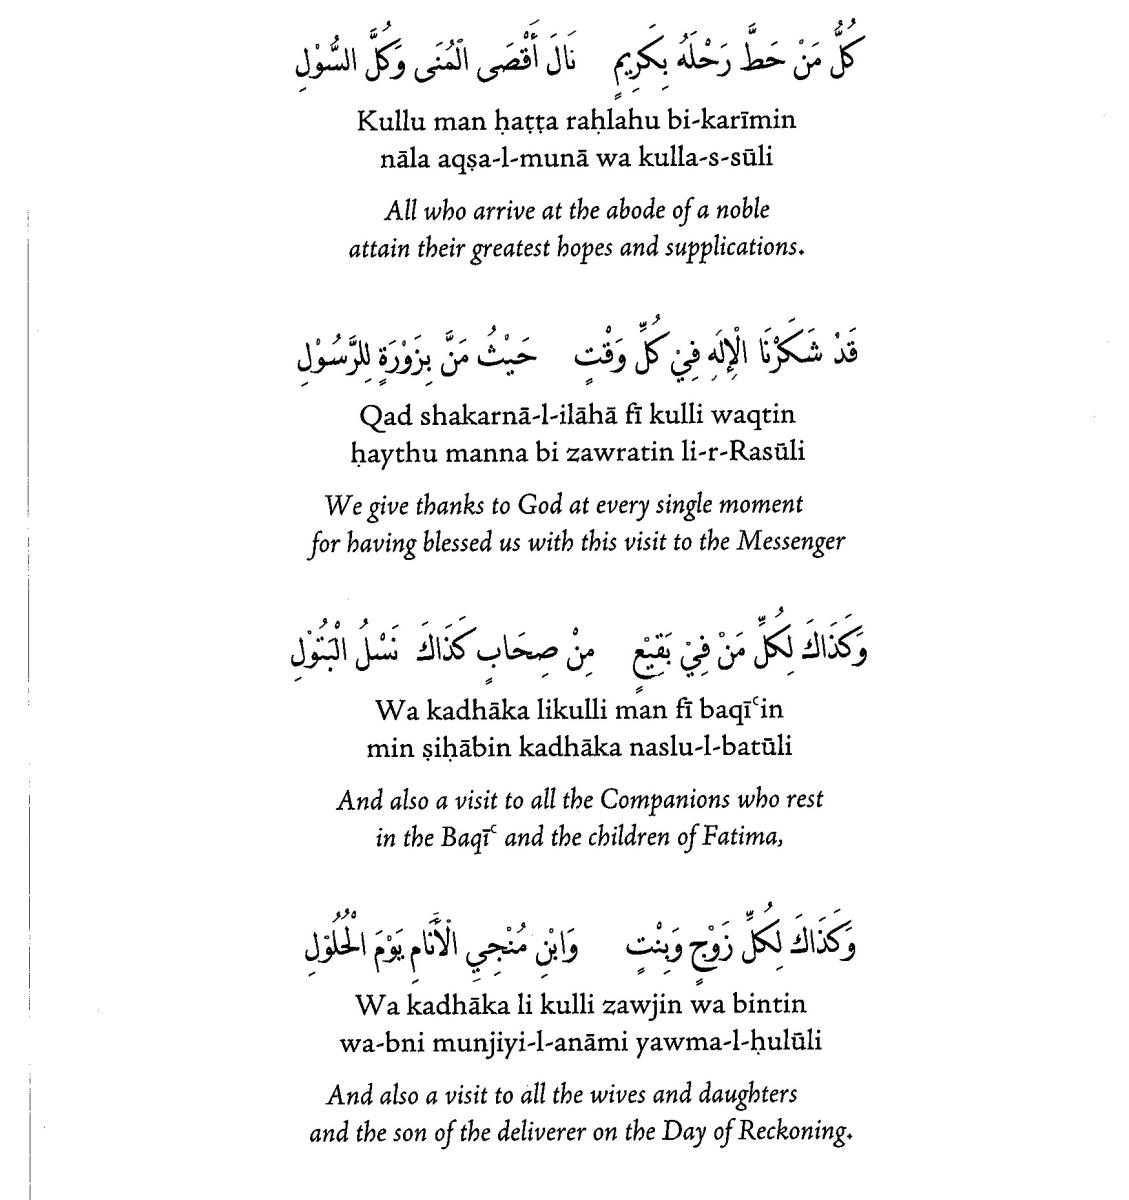 كُلُّ مَنْ حَطَّ رَحْلَهُ بِكَرِيمٍ نَالَ أَقْصَى الْمُنَى وَكُلَّ السُّوْلِ
Kullu man ḥaṭṭa raḥlahu bi-karīmin
nāla aqṣa-l-munā wa kulla-s-sūli
All who arrive at the abode of a noble
attain their greatest hopes and supplications.
قَدْ شَكَرْنَا الْإِلَهِ فِيْ كُلِّ وَقْتٍ حَيْثُ مَنَّ بِزَوْرَةٍ لِلرَّسُوْلِ
Qad shakarnā-l-ilāhā fī kulli waqtin
ḥaythu manna bi zawratin li-r-Rasūli
We give thanks to God at every single moment
for having blessed us with this visit to the Messenger
وَكَذَاكَ لِكُلِّ مَنْ فِيْ بَقِيْعٍ مِنْ صِحَابٍ كَذَاكَ نَسْلُ الْبَتُوْلِ
Wa kadhāka likulli man fī baqīʿin
min ṣiḥābin kadhāka naslu-l-batūli
And also a visit to all the Companions who rest
in the Baqīʿ and the children of Fatima,
وَكَذَاكَ لِكُلِّ زَوْجٍ وَبِنْتٍ وَابْنِ مُنْجِيِ الْأَنَامِ يَوْمَ الْحُلُوْلِ
Wa kadhāka li kulli zawjin wa bintin
wa-bni munjiyi-l-anāmi yawma-l-ḥulūli
And also a visit to all the wives and daughters
and the son of the deliverer on the Day of Reckoning.